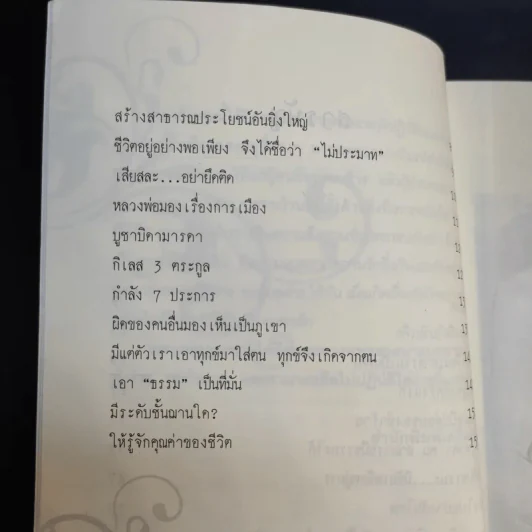 สร้างสาธารณประโยชน์อันยิ่งใหญ่
ชีวิตอยู่อย่างพอเพียง จึงได้ชื่อว่า “ไม่ประมาท”
เสียสละ...อย่ายึดติด
หลวงพ่อมองเรื่องการเมือง
บูชาบิดามารดา
กิเลส 3 ตระกูล
กำลัง 7 ประการ
ผิดของคนอื่นมองเห็นเป็นภูเขา
มีแต่ตัวเราเอาทุกข์มาใส่ตน ทุกข์จึงเกิดจากตน
เอา “ธรรม” เป็นที่มั่น
มีระดับชั้นฌานใด?
ให้รู้จักคุณค่าของชีวิต